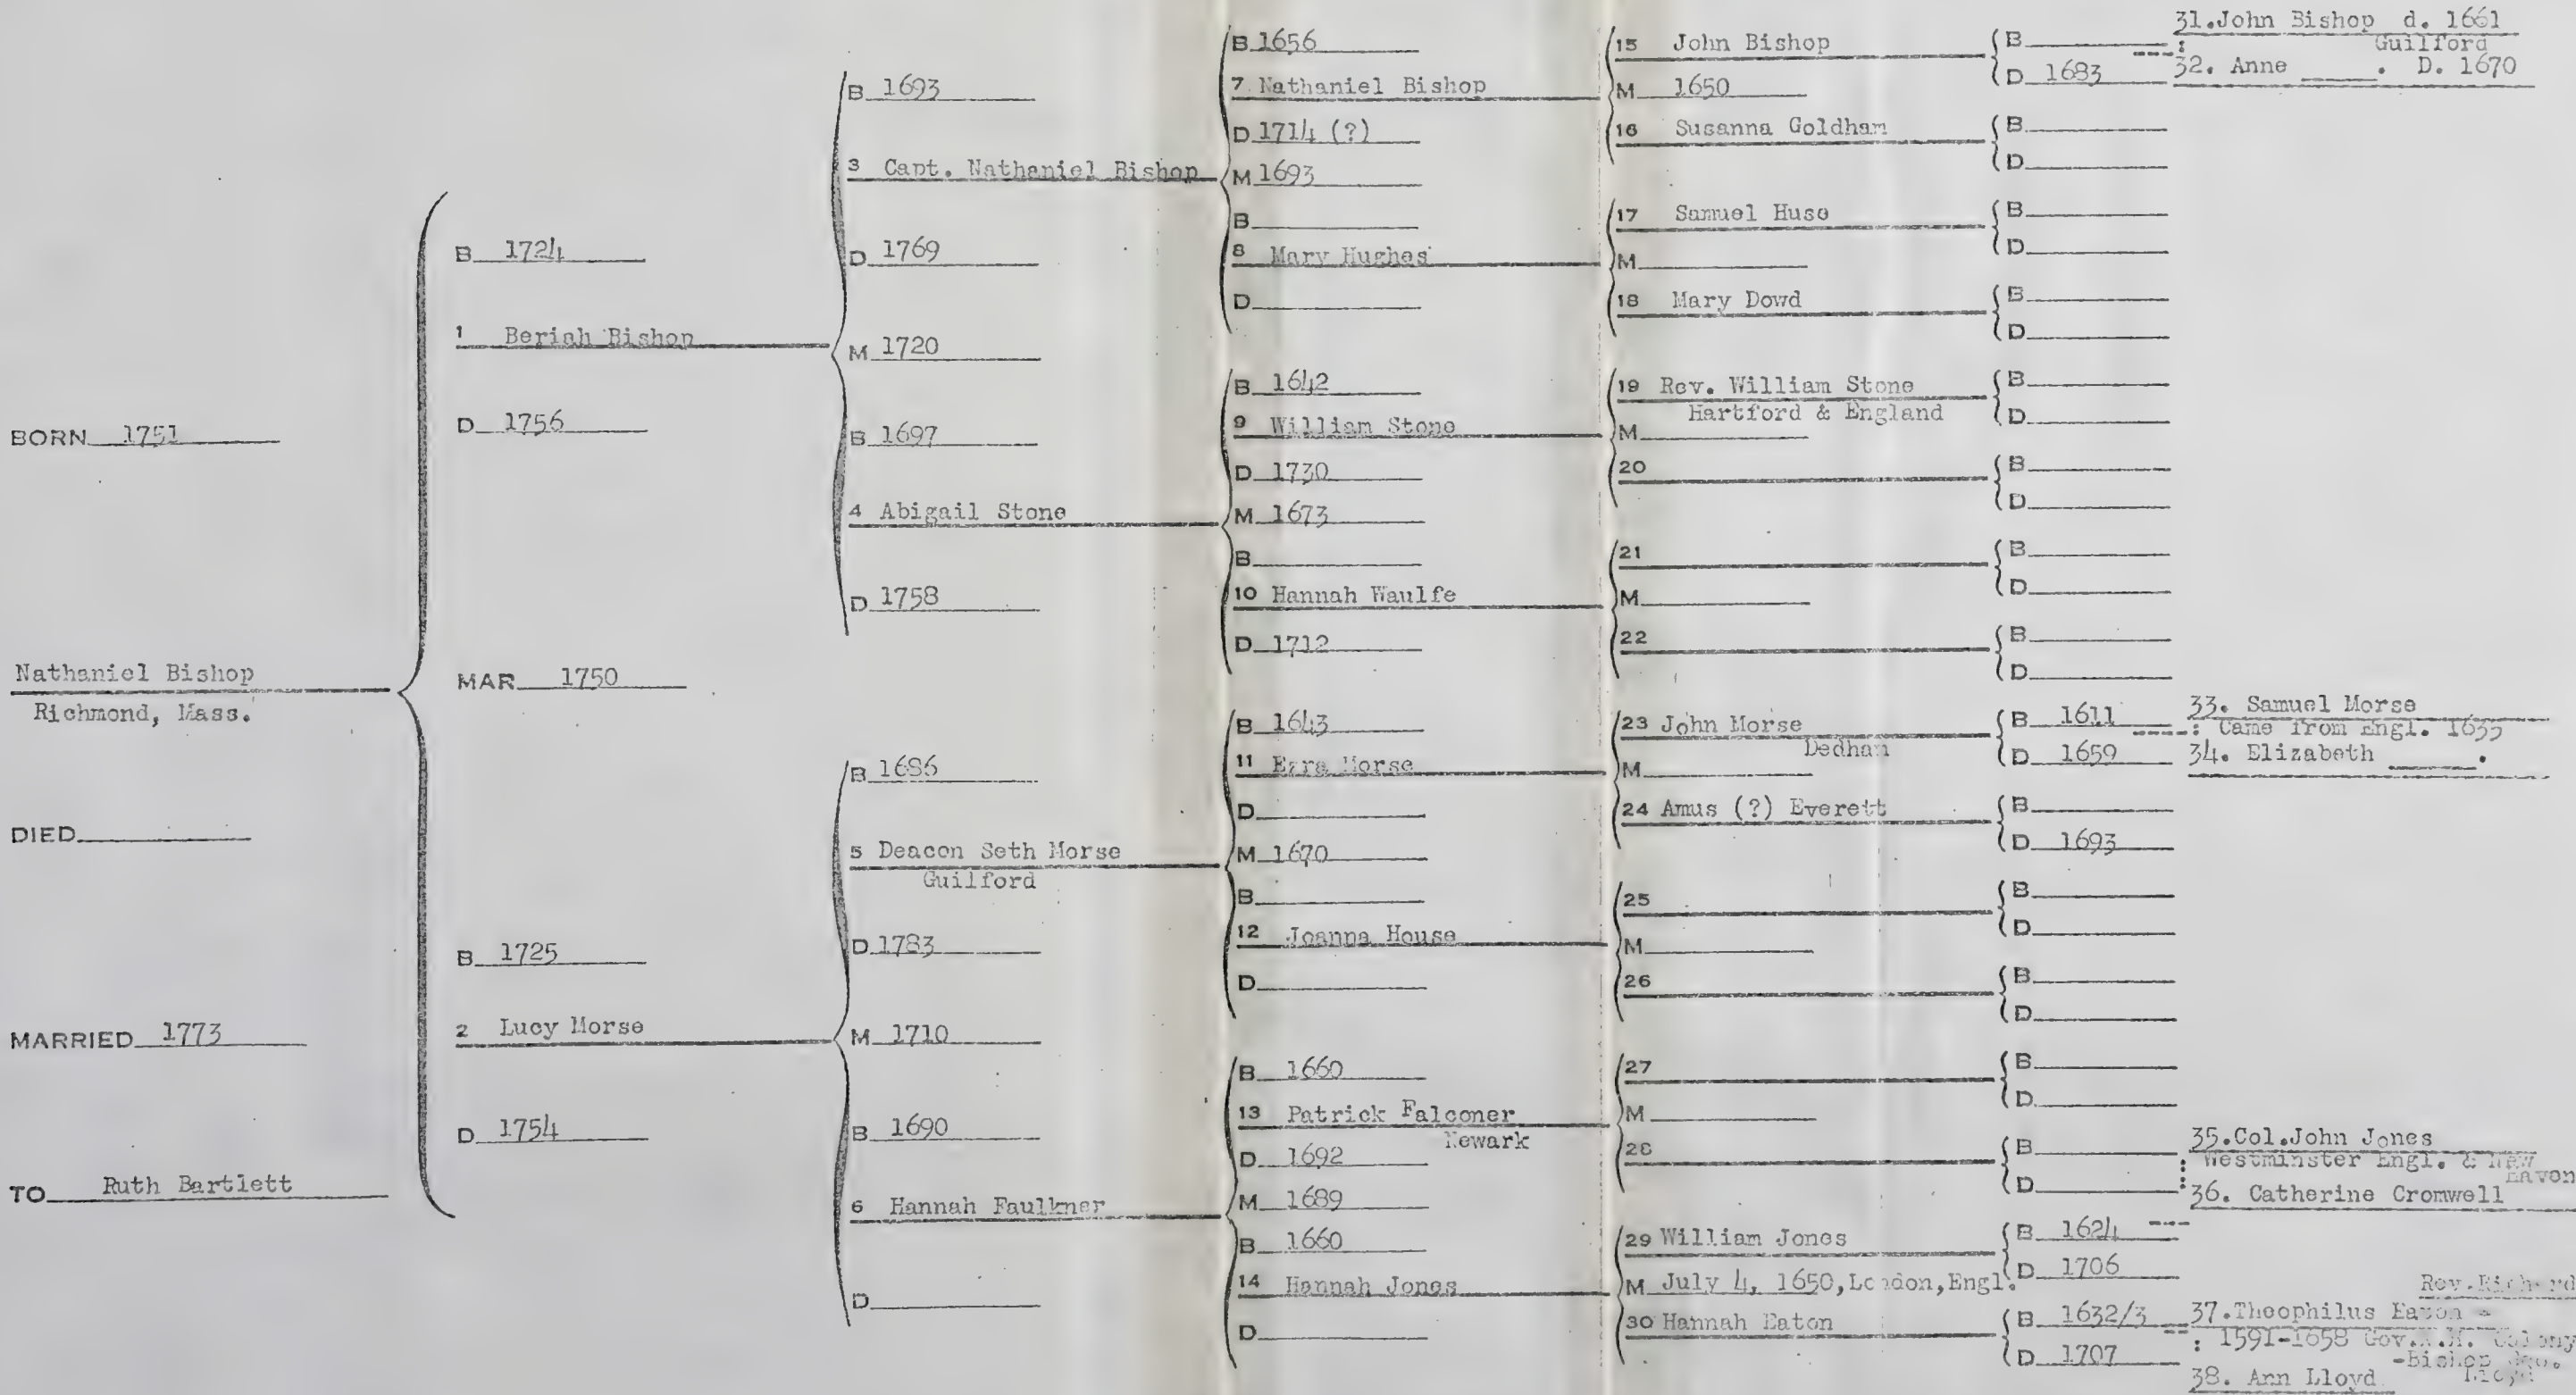 BORN 1751
Nathaniel Bishop
Richmond, Mass.
DIED
MARRIED 1773
TO Ruth Bartlett
B 1724
1 Beriah Bishop
D 1756
MAR 1750
B 1725
2 Lucy Morse
D 1754
B 1693
3 Capt. Nathaniel Bishop
D 1769
M 1720
B 1697
4 Abigail Stone
D 1758
B 1686
5 Deacon Seth Morse
Guilford
D 1783
M 1710
B 1690
6 Hannah Faulkner
D
B 1656
7 Nathaniel Bishop
D 1714 (?)
M 1693
B
8 Mary Hughes
D
B 1642
9 William Stone
D 1730
M 1673
B
10 Hannah Waulfe
D 1712
B 1643
11 Ezra Morse
D
M 1670
B
12 Joanna House
D
B 1660
13 Patrick Falconer
Newark
D 1692
M 1689
B 1660
14 Hannah Jones
D
15 John Bishop
M 1650
16 Susanna Goldham
17 Samuel Huse
M
18 Mary Dowd
19 Rev. William Stone
Hartford & England
M
20
21
M
22
23 John Morse
Dedham
M
24 Amus (?) Everett
25
M
26
27
M
28
29 William Jones
M July 4, 1650, London, Engl.
30 Hannah Eaton
B
D 1683
B
D
B
D
B
D
B
D
B
D
B
D
B
D
B 1611
D 1659
B
D 1693
B
D
B
D
B
D
B
D
B 1624
D 1706
B 1632/3
D 1707
31. John Bishop d. 1661
: Guilford
32. Anne _____. D. 1670
33. Samuel Morse
: Came from Engl. 1635
34. Elizabeth _____.
35. Col. John Jones
: Westminster Engl. & New
Haven
36. Catherine Cromwell
Rev. Richard
37. Theophilus Eaton -
: 1591-1658 Gov. N.H. Colony
-Bishop Geo.
Lloyd
38. Ann Lloyd